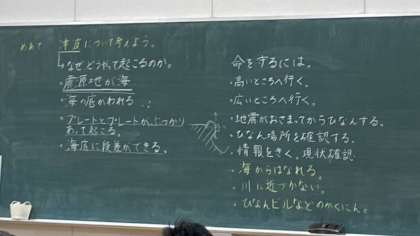 めあて 津波について考えよう。
なぜどうやって起こるのか。
震原地が海
・海の底がわれる
・プレートとプレートが、ぶつかり
あって起こる。
・海底に段差ができる。
命を守るには。
・高いところへ行く。
・広いところへ行く。
・地震がおさまってからひなんする。
・ひなん場所を確認する。
・情報をきく。現状確認
・海からはなれる。
・川に近づかない。
・ひなんビルなどのかくにん。